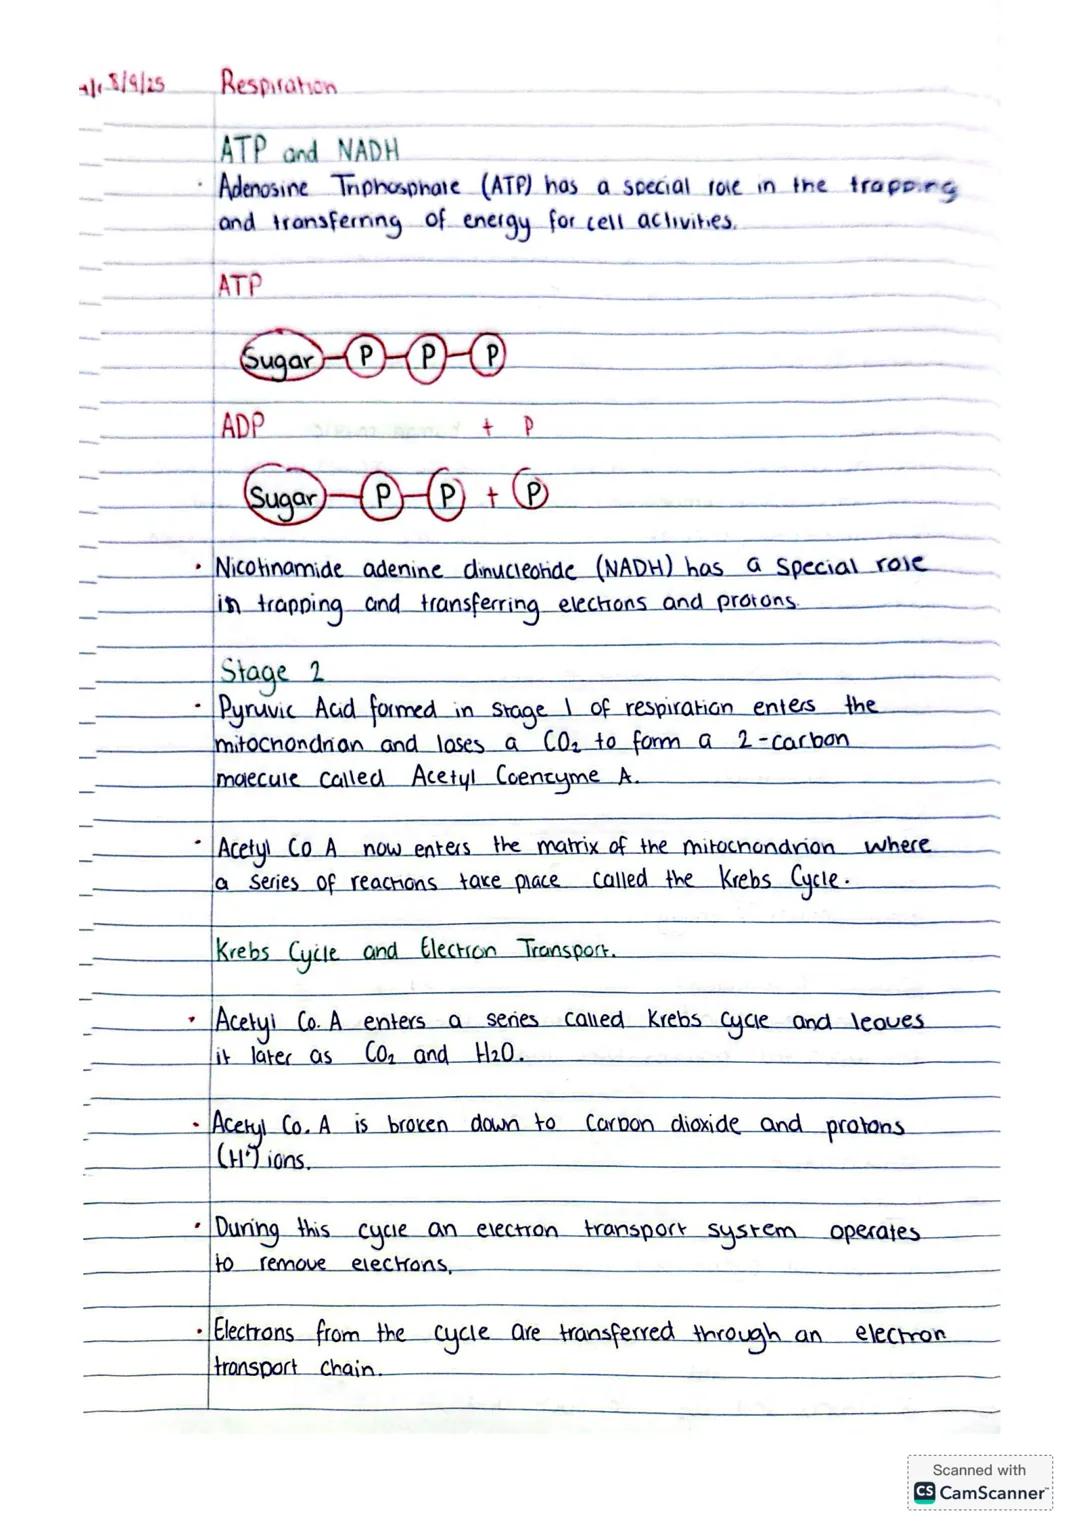 8/9/25 Respiration
ATP and NADH
· Adenosine Triphosphate (ATP) has a special role in the trapping
and transferring of energy for cell activities.
ATP
Sugar P P P
ADP + P
Sugar P P + P
· Nicotinamide adenine dinucleotide (NADH) has a special role
in trapping and transferring electrons and protons.
Stage 2
· Pyruvic Acid formed in stage 1 of respiration enters the
mitochondrion and loses a CO₂ to form a 2-carbon
molecule called Acetyl Coenzyme A.
· Acetyl Co A now enters the matrix of the mitochondrion where
a series of reactions take place called the Krebs Cycle.
Krebs Cycle and Electron Transport.
· Acetyl Co. A enters a series called Krebs cycle and leaves
it later as CO₂ and H2O.
· Acetyl Co. A is broken down to Carbon dioxide and protons
(H⁺) ions.
· During this cycle an electron transport system operates
to remove electrons.
· Electrons from the cycle are transferred through an electron
transport chain.
Scanned with
CS CamScanner